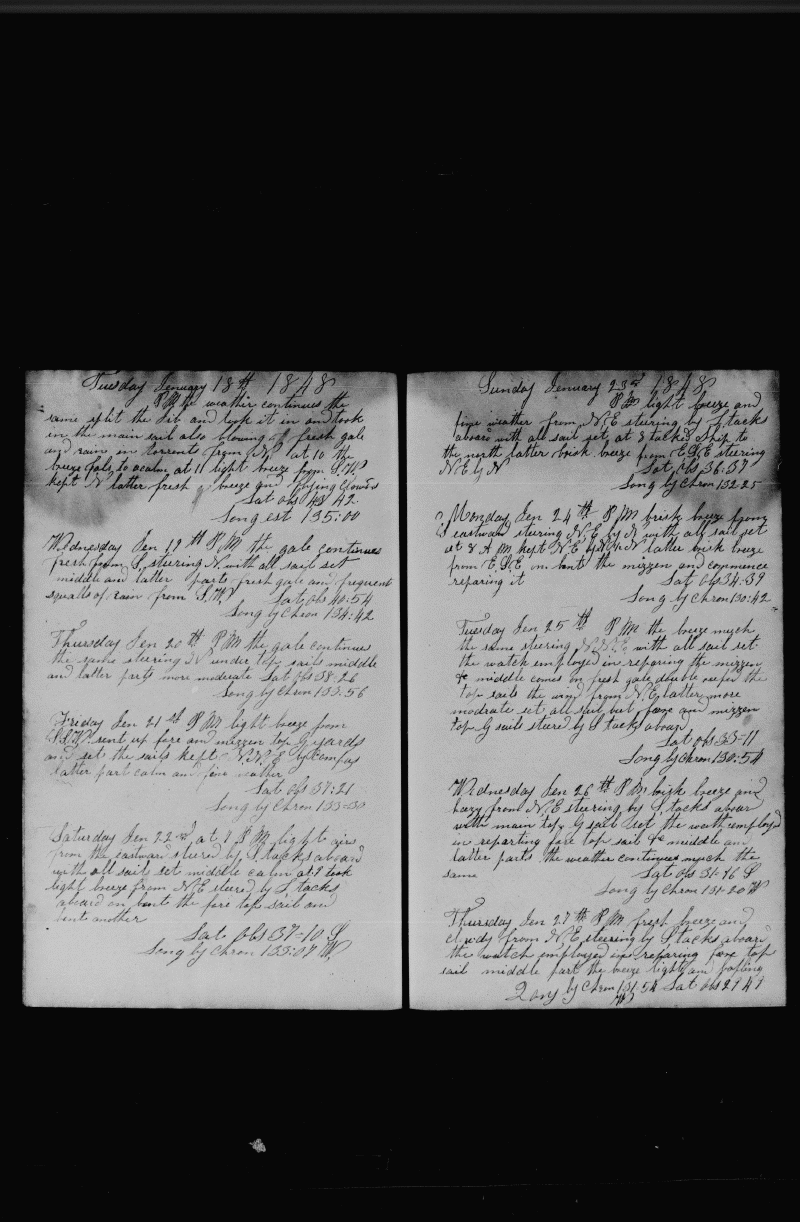 Tuesday Jenuary 18th 1848
P M the weather continues the
same split the Jib and took it in and took
in the main sail also blowing a fresh gale
and rain in torrents from N at 10 the
breeze fals to acalm at 11 light breeze from S.W.
kept N latter fresh breeze and
Lat obs 43 42
Long est 135:00
Wednesday Jen 19th P M the gale continues
fresh from S. steering N. with all sail set
middle and latter parts fresh gale and frequent
squalls of rain from S.W. Lat obs 40:54
Long by Chron 134:42
Thursday Jen 20th P M the gale continues
the same steering N under top sails middle
and latter parts more moderate Lat obs 38:26
Long by Chron 133:56
Friday Jen 21st P M light breeze from
S.S.W. sent up fore and mizzen top G yards
and set the sails kept N.N.E by Compas
latter part calm and fine weather
Lat obs 37:21
Long by Chron 133-30
Saturday Jen 22nd at 1 P M light airs
from the eastward steered by S tacks aboard
with all sail set middle calm at 9 took
light breeze from N E steered by S tacks
aboard on bent the fore top sail and
bent another
Lat obs 37-10 S
Long by Chron 133:07 W
Sunday Jenuary 23rd 1848
P M light breeze and
fine weather from N.E steering by S tacks
aboard with all sail set at 3 talked Ship to
the north latter brisk breeze from E.S.E steering
N E by N Lat obs 36:37
Long by Chron 132:25
Monday Jen 24th P M brisk breeze from
eastward steering N.E by N with all sail set
at 8 A M kept N E by N latter brisk breeze
from E.S.E on bent the mizzen and commence
repareing it Lat obs 34-39
Long by Chron 130:42
Tuesday Jen 25th P M the breeze much
the same steering N.N.E with all sail set
the watch employed in repareing the mizzen
&c middle comes on fresh gale double reefer the
top sails the wind from N.E. latter more
modrate set all sail but fore and mizzen
top G sails steered by S tacks aboard
Lat obs 33-11
Long by Chron 130:54
Wednesday Jen 26th P M brisk breeze and
hazy from N.E steering by S. tacks aboard
with main top G sail set the watch employed
in reparting fore top sail &c middle and
latter parts the weather continues much the
same Lat obs 31-16 S
Long by Chron 131-20 W
Thursday Jen 27th P M fresh breeze and
clowdy from N.E steering by S tacks aboard
the watch employed in repareing fore top
sail middle part the breeze light and
Long by Chron 131:54 Lat obs 29 47